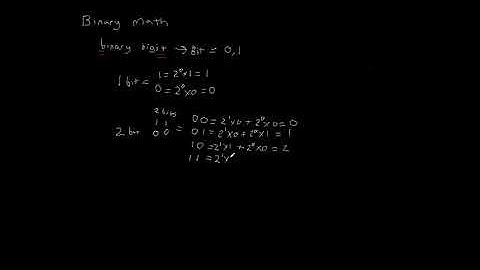 Binary Math
binary digit → Bit = 0,1
1 bit = 1 = 2⁰x1 = 1
0 = 2⁰x0 = 0
2 bits
2 bit 1 1 0 0 = 00 = 2¹x0 + 2⁰x0 = 0
01 = 2¹x0 + 2⁰x1 = 1
10 = 2¹x1 + 2⁰x0 = 2
11 = 2¹x